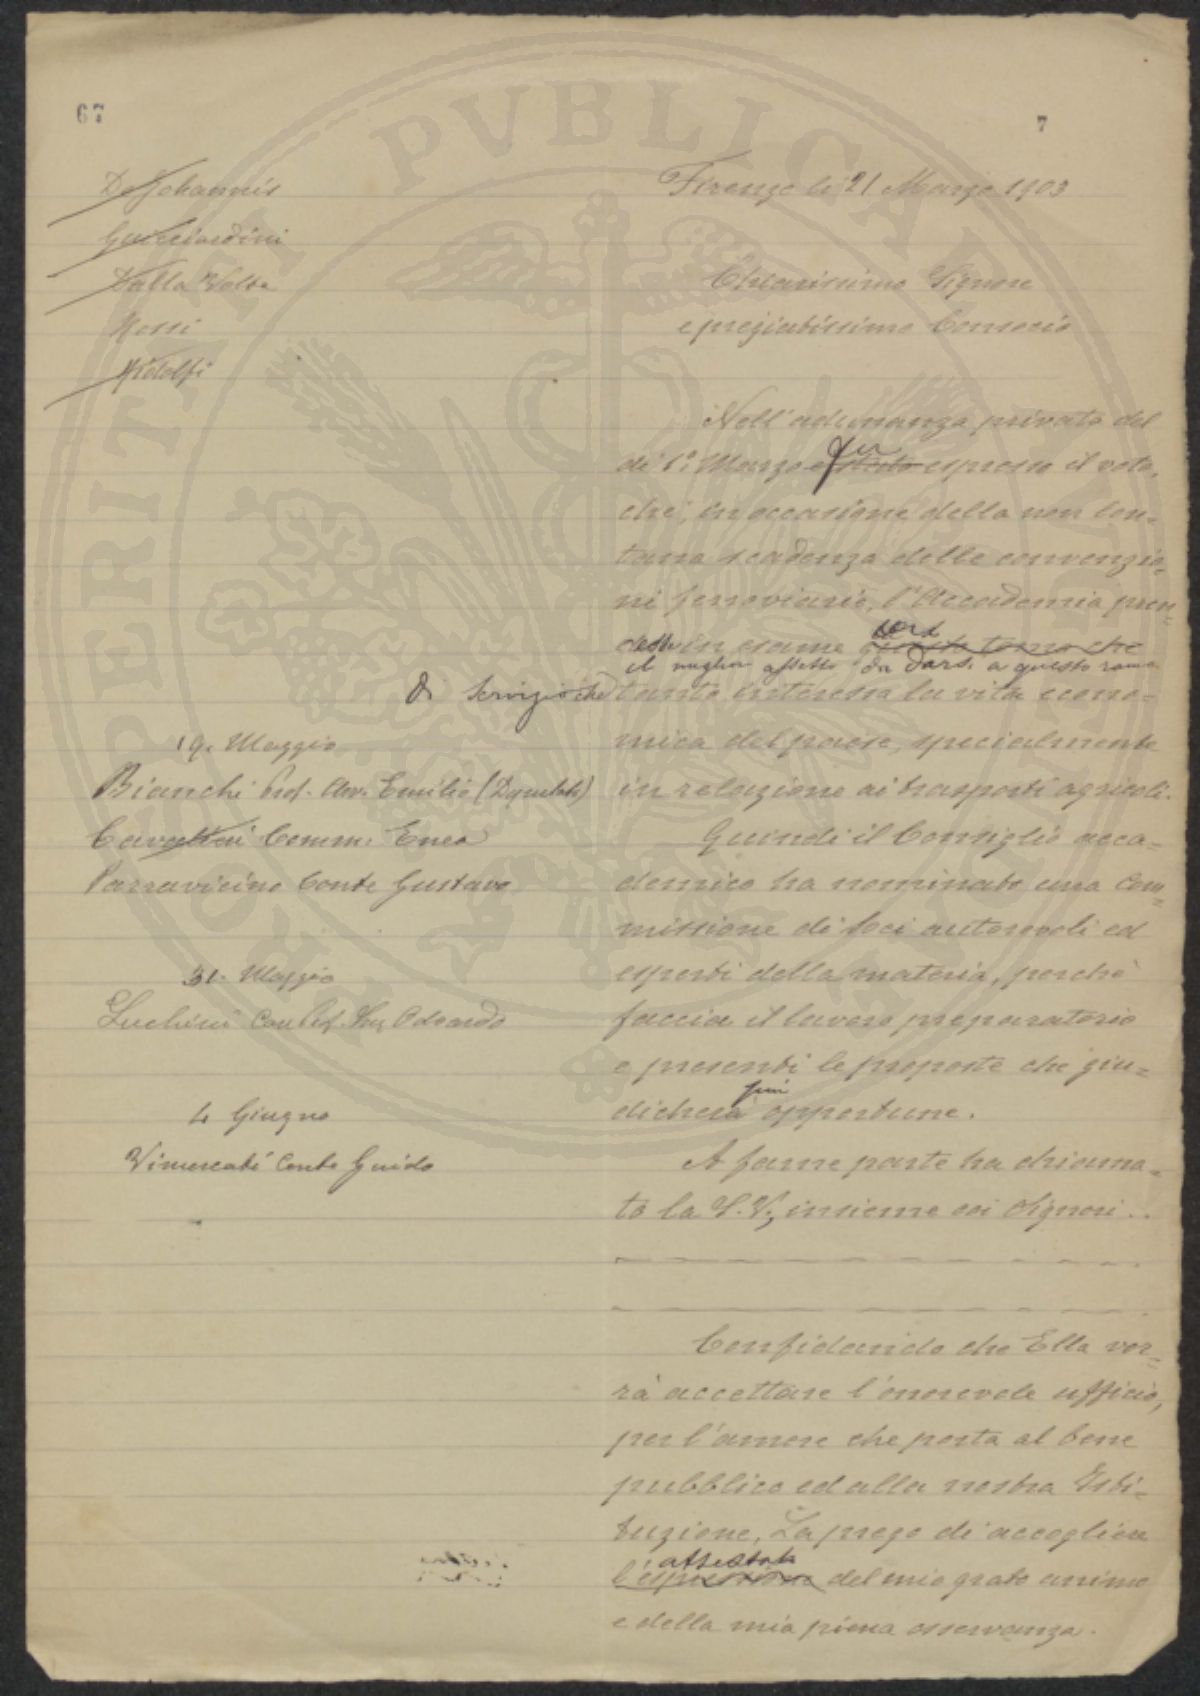 67
7
De Johannis
Guicciardini
Dalla Volta
Rossi
Ridolfi
Firenze li 21 Marzo 1903
Chiarissimo Signore
e pregiatissimo Consocio
Nell'adunanza privata del
dì 1° Marzo fu espresso il voto,
che, in occasione della non lon-
tana scadenza delle convenzio-
ni ferroviarie, l'Accademia pren-
desse in esame questo tema che
il miglior assetto da darsi a questo ramo
di servizio che tanto interessa la vita econo-
mica del paese, specialmente
in relazione ai trasporti agricoli.
Quindi il Consiglio acca-
demico ha nominato una Com-
missione di Soci autorevoli ed
esperti della materia, perchè
faccia il lavoro preparatorio
e presenti le proposte che giu-
dicherà più opportune.
A farne parte ha chiama-
to la S.V., insieme coi Signori ..
19. Maggio
Bianchi Prof. Avv. Emilio (Deputato)
Cavalieri Comm. Enea
Parravicino Conte Gustavo
31. Maggio
Luchini Odoardo
4 Giugno
Vimercati Conte Guido
Confidando che Ella vor-
rà accettare l'onorevole ufficio,
per l'amore che porta al bene
pubblico ed alla nostra Isti-
tuzione, La prego di accogliere
attestato
l'espressione del mio grato animo
e della mia piena osservanza.
PROSPERITATI PVBLICAE AVGENDAE